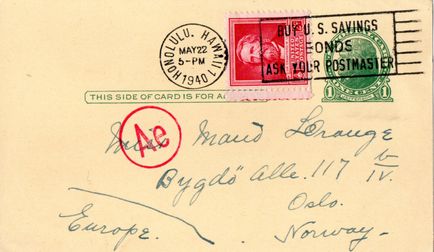 HONOLULU, HAWAII 1
MAY 22
5-PM
1940
BUY U.S. SAVINGS
BONDS
ASK YOUR POSTMASTER
THIS SIDE OF CARD IS FOR
1 1
Ae
Miss Maud
Bygdö Alle. 117 b/IV.
Oslo.
Europe. Norway-